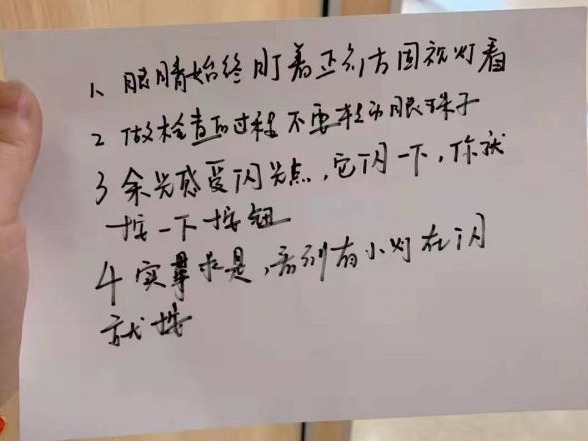 1、眼睛始终盯着正前方固视灯看
2 做检查的过程不要转动眼珠子
3 余光感受闪光点,它闪一下,你就
按一下按钮
4 实事求是,看到有小灯在闪
就按